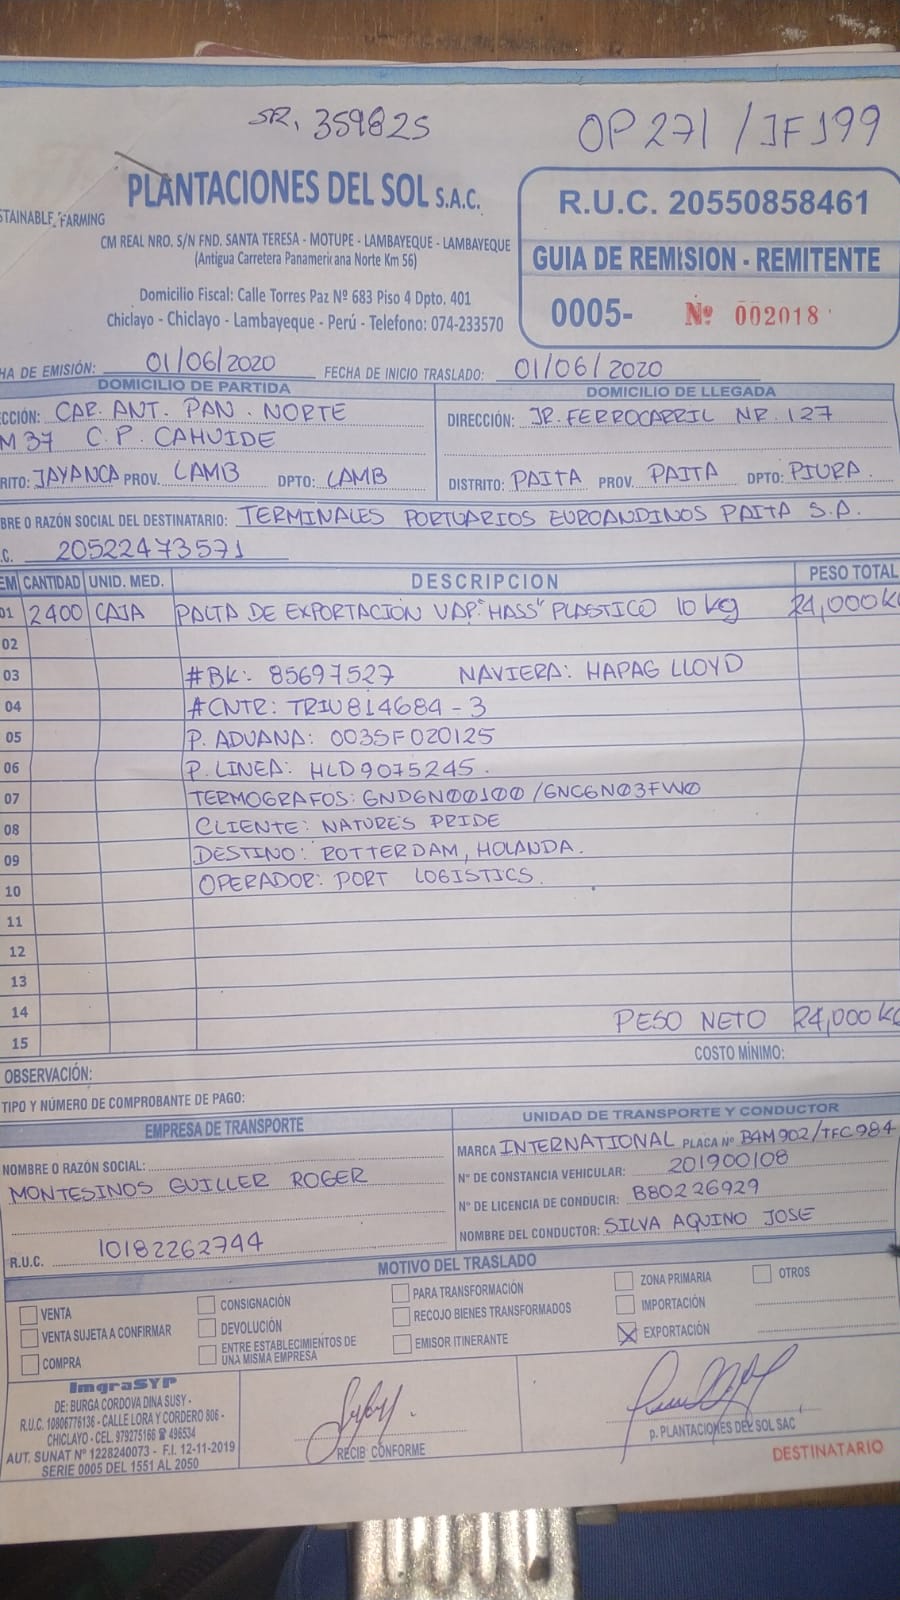 SR. 359825
OP 271 / JF199
PLANTACIONES DEL SOL S.A.C.
STAINABLE FARMING
CM REAL NRO. S/N FND. SANTA TERESA - MOTUPE - LAMBAYEQUE - LAMBAYEQUE
(Antigua Carretera Panamericana Norte Km 56)
Domicilio Fiscal: Calle Torres Paz Nº 683 Piso 4 Dpto. 401
Chiclayo - Chiclayo - Lambayeque - Perú - Telefono: 074-233570
R.U.C. 20550858461
GUIA DE REMISION - REMITENTE
0005- Nº 002018
HA DE EMISIÓN: 01/06/2020 FECHA DE INICIO TRASLADO: 01/06/2020
DOMICILIO DE PARTIDA
CCIÓN: CAR. ANT. PAN. NORTE
M 37 C.P. CAHUIDE
RITO: JAYANCA PROV. LAMB DPTO: LAMB
DOMICILIO DE LLEGADA
DIRECCIÓN: JR. FERROCARRIL NR. 127
DISTRITO: PAITA PROV. PAITA DPTO: PIURA.
BRE O RAZÓN SOCIAL DEL DESTINATARIO: TERMINALES PORTUARIOS EUROANDINOS PAITA S.A.
C. 20522473571
EM CANTIDAD UNID. MED. DESCRIPCION PESO TOTAL
01 2400 CAJA PALTA DE EXPORTACION VAR. "HASS" PLASTICO 10 kg 24,000 KG
02
03 #BK: 85697527 NAVIERA: HAPAG LLOYD
04 #CNTR: TRIU814684-3
05 P. ADUANA: 0035F020125
06 P. LINEA: HLD9075245.
07 TERMOGRAFOS: GND6N00100 / GNC6N03FW0
08 CLIENTE: NATURE'S PRIDE
09 DESTINO: ROTTERDAM, HOLANDA.
10 OPERADOR: PORT LOGISTICS.
11
12
13
14 PESO NETO 24,000 KG
15
COSTO MÍNIMO:
OBSERVACIÓN:
TIPO Y NÚMERO DE COMPROBANTE DE PAGO:
EMPRESA DE TRANSPORTE
NOMBRE O RAZÓN SOCIAL:
MONTESINOS GUILLER ROGER
R.U.C. 10182262744
UNIDAD DE TRANSPORTE Y CONDUCTOR
MARCA INTERNATIONAL PLACA Nº B4M902/TFC984
Nº DE CONSTANCIA VEHICULAR: 201900108
Nº DE LICENCIA DE CONDUCIR: B80226929
NOMBRE DEL CONDUCTOR: SILVA AQUINO JOSE
MOTIVO DEL TRASLADO
VENTA
VENTA SUJETA A CONFIRMAR
COMPRA
CONSIGNACIÓN
DEVOLUCIÓN
ENTRE ESTABLECIMIENTOS DE
UNA MISMA EMPRESA
PARA TRANSFORMACIÓN
RECOJO BIENES TRANSFORMADOS
EMISOR ITINERANTE
ZONA PRIMARIA
IMPORTACIÓN
EXPORTACIÓN
OTROS
ImgraSYP
DE: BURGA CORDOVA DINA SUSY -
R.U.C. 10806776136 - CALLE LORA Y CORDERO 806 -
CHICLAYO - CEL. 979275166 ☎ 496534
AUT. SUNAT Nº 1228240073 - F.I. 12-11-2019
SERIE 0005 DEL 1551 AL 2050
RECIBI CONFORME
p. PLANTACIONES DEL SOL SAC
DESTINATARIO